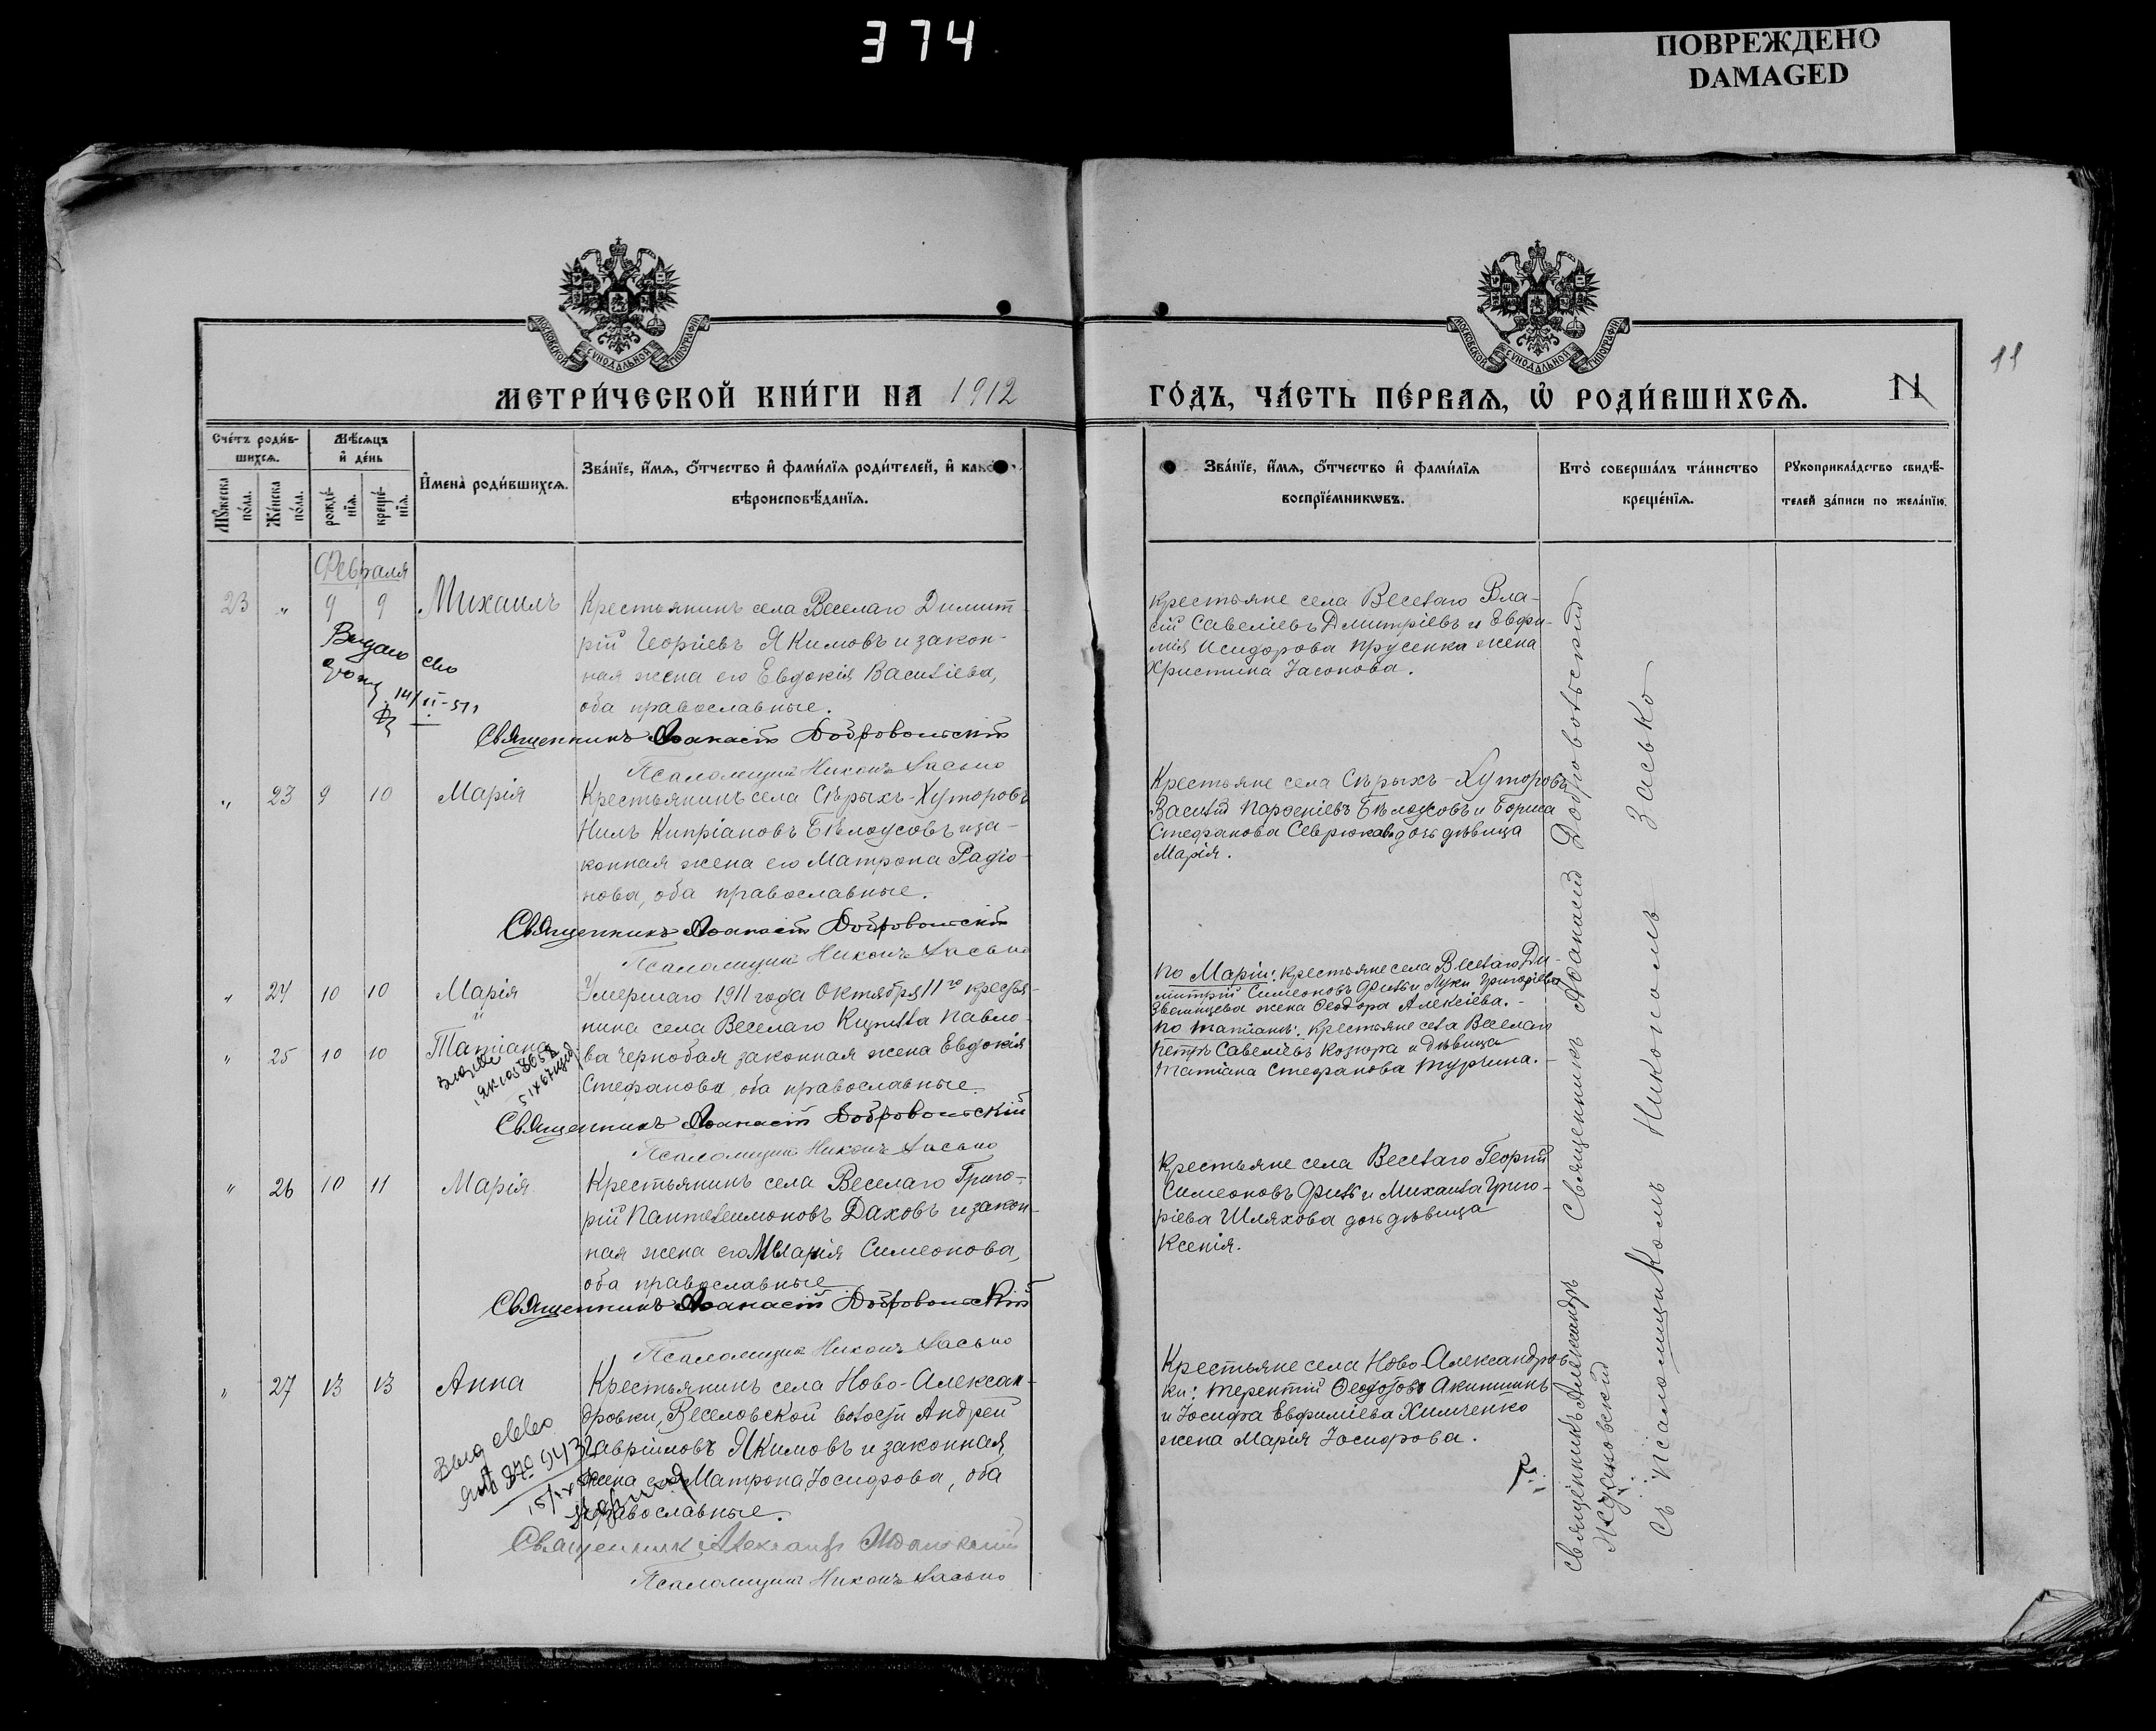 374
ПОВРЕЖДЕНО
DAMAGED
МОСКОВСКОЙ СѴНОДАЛЬНОЙ ТИПОГРАФІИ
МОСКОВСКОЙ СѴНОДАЛЬНОЙ ТИПОГРАФІИ
11
МЕТРИ́ЧЕСКОЙ КНИ́ГИ НА 1912
ГО́ДЪ, ЧА́СТЬ ПЕ́РВАѦ, Ѡ҆ РОДИ́ВШИХСѦ.
11
Сче́тъ роди́в-
шихсѧ.
Мꙋ́жеска по́ла.
Же́нска по́ла.
Мѣ́сѧцъ
и҆ де́нь
рожде́-
нїѧ.
креще́-
нїѧ.
И҆мена̀ роди́вшихсѧ.
Зва́нїе, и҆́мѧ, ѻ҆́тчество и҆ фами́лїѧ роди́телей, и҆ како́гѡ
вѣроисповѣ́данїѧ.
Зва́нїе, и҆́мѧ, ѻ҆́тчество и҆ фами́лїѧ
воспрїе́мникѡвъ.
Кто̀ соверша́лъ та́инство
креще́нїѧ.
Рꙋкоприкла́дство свидѣ́-
телей за́писи по жела́нїю.
Февраля
23 „ 9 9 Михаилъ
Крестьянинъ села Веселаго Димит-
рій Георгіевъ Якимовъ и закон-
ная жена его Евдокія Василіева,
оба православные.
Священникъ Аѳанасій Добровольскій
Псаломщикъ Никонъ Засько
Крестьяне села Веселаго Вла-
сій Савеліевъ Дмитріевъ и Евфи-
мія Исидорова Прусенка жена
Христина Іасонова.
„ 23 9 10 Марія
Крестьянинъ села Сѣрыхъ-Хуторовъ
Нилъ Кипріановъ Бѣлоусовъ и за-
конная жена его Матрона Радіо-
нова, оба православные.
Священникъ Аѳанасій Добровольскій
Псаломщикъ Никонъ Засько
Крестьяне села Сѣрыхъ-Хуторовъ
Василій Парѳеніевъ Бѣлоусовъ и Бориса
Стефанова Севрюкова дочь дѣвица
Марія.
„ 24 10 10 Марія
и
„ 25 10 10 Татіана
Умершаго 1911 года Октября 11го кресть-
янина села Веселаго Кирилла Павло-
ва Чернобая законная жена Евдокія
Стефанова, оба православные
Священникъ Аѳанасій Добровольскій
Псаломщикъ Никонъ Засько
По Маріи: Крестьяне села Веселаго Ди-
митрій Симеоновъ Филь и Луки Григоріева
жена Ѳеодора Алексіева.
По Татіанѣ: Крестьяне села Веселаго
Петръ Савеліевъ Козюра и дѣвица
Татіана Стефанова Турчина.
„ 26 10 11 Марія
Крестьянинъ села Веселаго Григо-
рій Пантелеимоновъ Даховъ и закон-
ная жена его Марія Симеонова,
оба православные
Священникъ Аѳанасій Добровольскій
Псаломщикъ Никонъ Засько
Крестьяне села Веселаго Георгій
Симеоновъ Филь и Михаила Григо-
ріева Шляхова дочь дѣвица
Ксенія.
„ 27 13 13 Анна
Крестьянинъ села Ново-Алексан-
дровки, Веселовской волости Андрей
Гавріиловъ Якимовъ и законная
жена его Матрона Іосифова, оба
православные.
Священникъ Александръ Ждановскій
Псаломщикъ Никонъ Засько
Крестьяне села Ново-Александров-
ки: Терентій Ѳеодотовъ Акишинъ
и Іосифа Евфиміева Химченко
жена Марія Іосифова.
Священникъ Аѳанасій Добровольскій
Священникъ Александръ
Ждановскій
съ псаломщикомъ Никономъ Засько